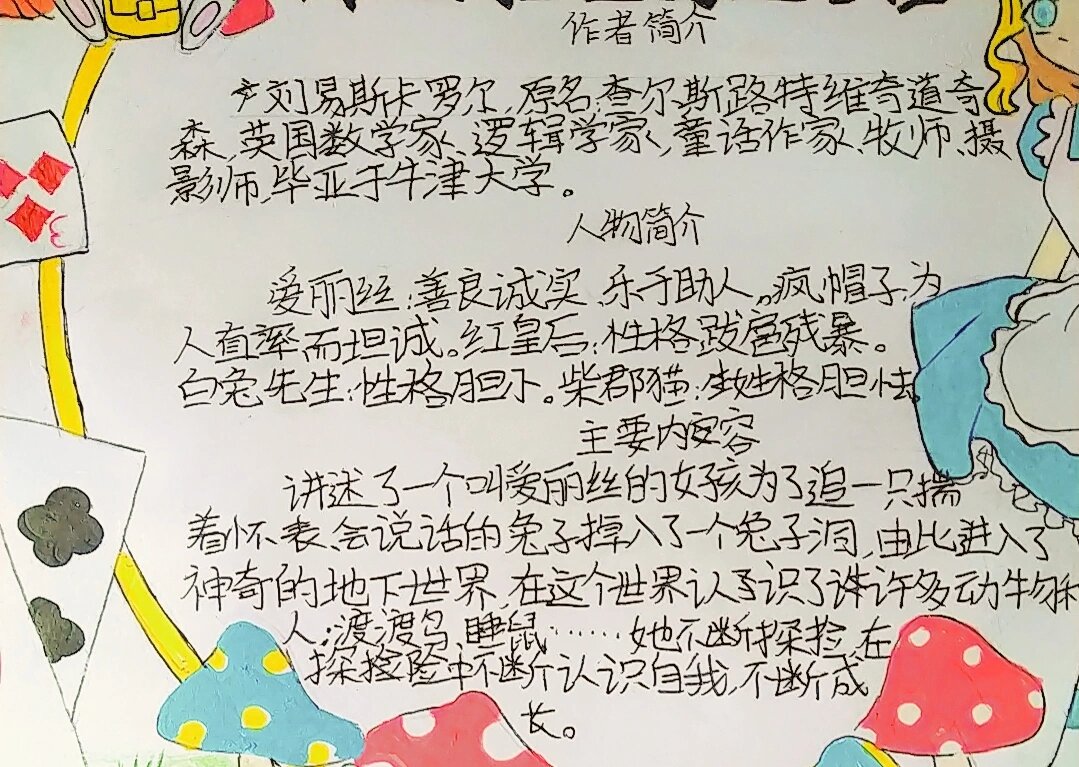 作者简介
刘易斯卡罗尔,原名查尔斯路特维奇道奇
森,英国数学家、逻辑学家,童话作家、牧师、摄
影师,毕业于牛津大学。
人物简介
爱丽丝:善良诚实、乐于助人。疯帽子:为
人直率而坦诚。红皇后:性格跋扈残暴。
白兔先生:性格胆小。柴郡猫:性格胆怯。
主要内容
讲述了一个叫爱丽丝的女孩为了追一只揣
着怀表、会说话的兔子掉入了一个兔子洞,由此进入了
神奇的地下世界,在这个世界认识了许多动物和
人:渡渡鸟、睡鼠……她不断探险,在
探险中不断认识自我,不断成
长。